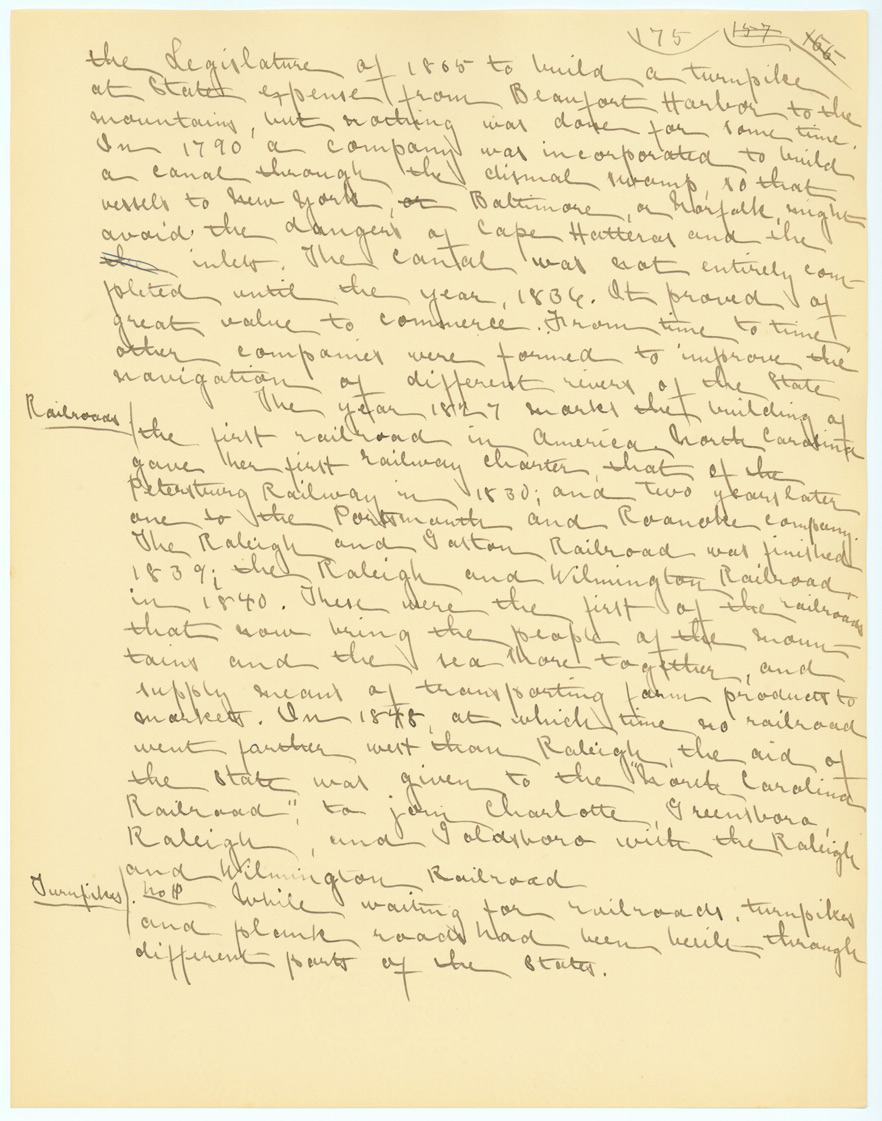 175 157 166
the Legislature of 1865 to build a turnpike
at State expense from Beaufort Harbor to the
mountains, but nothing was done for some time.
In 1790 a company was incorporated to build
a canal through the dismal swamp, so that
vessels to New York, or Baltimore, or Norfolk, might
avoid the dangers of Cape Hatteras and the
the inlets. The canal was not entirely com-
pleted until the year, 1836. It proved of
great value to commerce. From time to time
other companies were formed to improve the
navigation of different rivers of the State
The year 1827 marks the building of
Railroads / the first railroad in America. North Carolina
gave her first railway charter, that of the
Petersburg Railway in 1830; and two years later
one to the Portsmouth and Roanoke company.
The Raleigh and Gaston Railroad was finished
1839; the Raleigh and Wilmington Railroad,
in 1840. These were the first of the railroads
that now bring the people of the moun-
tains and the sea shore together, and
supply means of transporting farm products to
markets. In 1848, at which time no railroad
went farther west than Raleigh, the aid of
the State was given to the "North Carolina
Railroad", to join Charlotte, Greensboro,
Raleigh, and Goldsboro with the Raleigh
and Wilmington Railroad
Turnpikes / . No ¶ While waiting for railroads, turnpikes
and plank roads had been built through
different parts of the States.